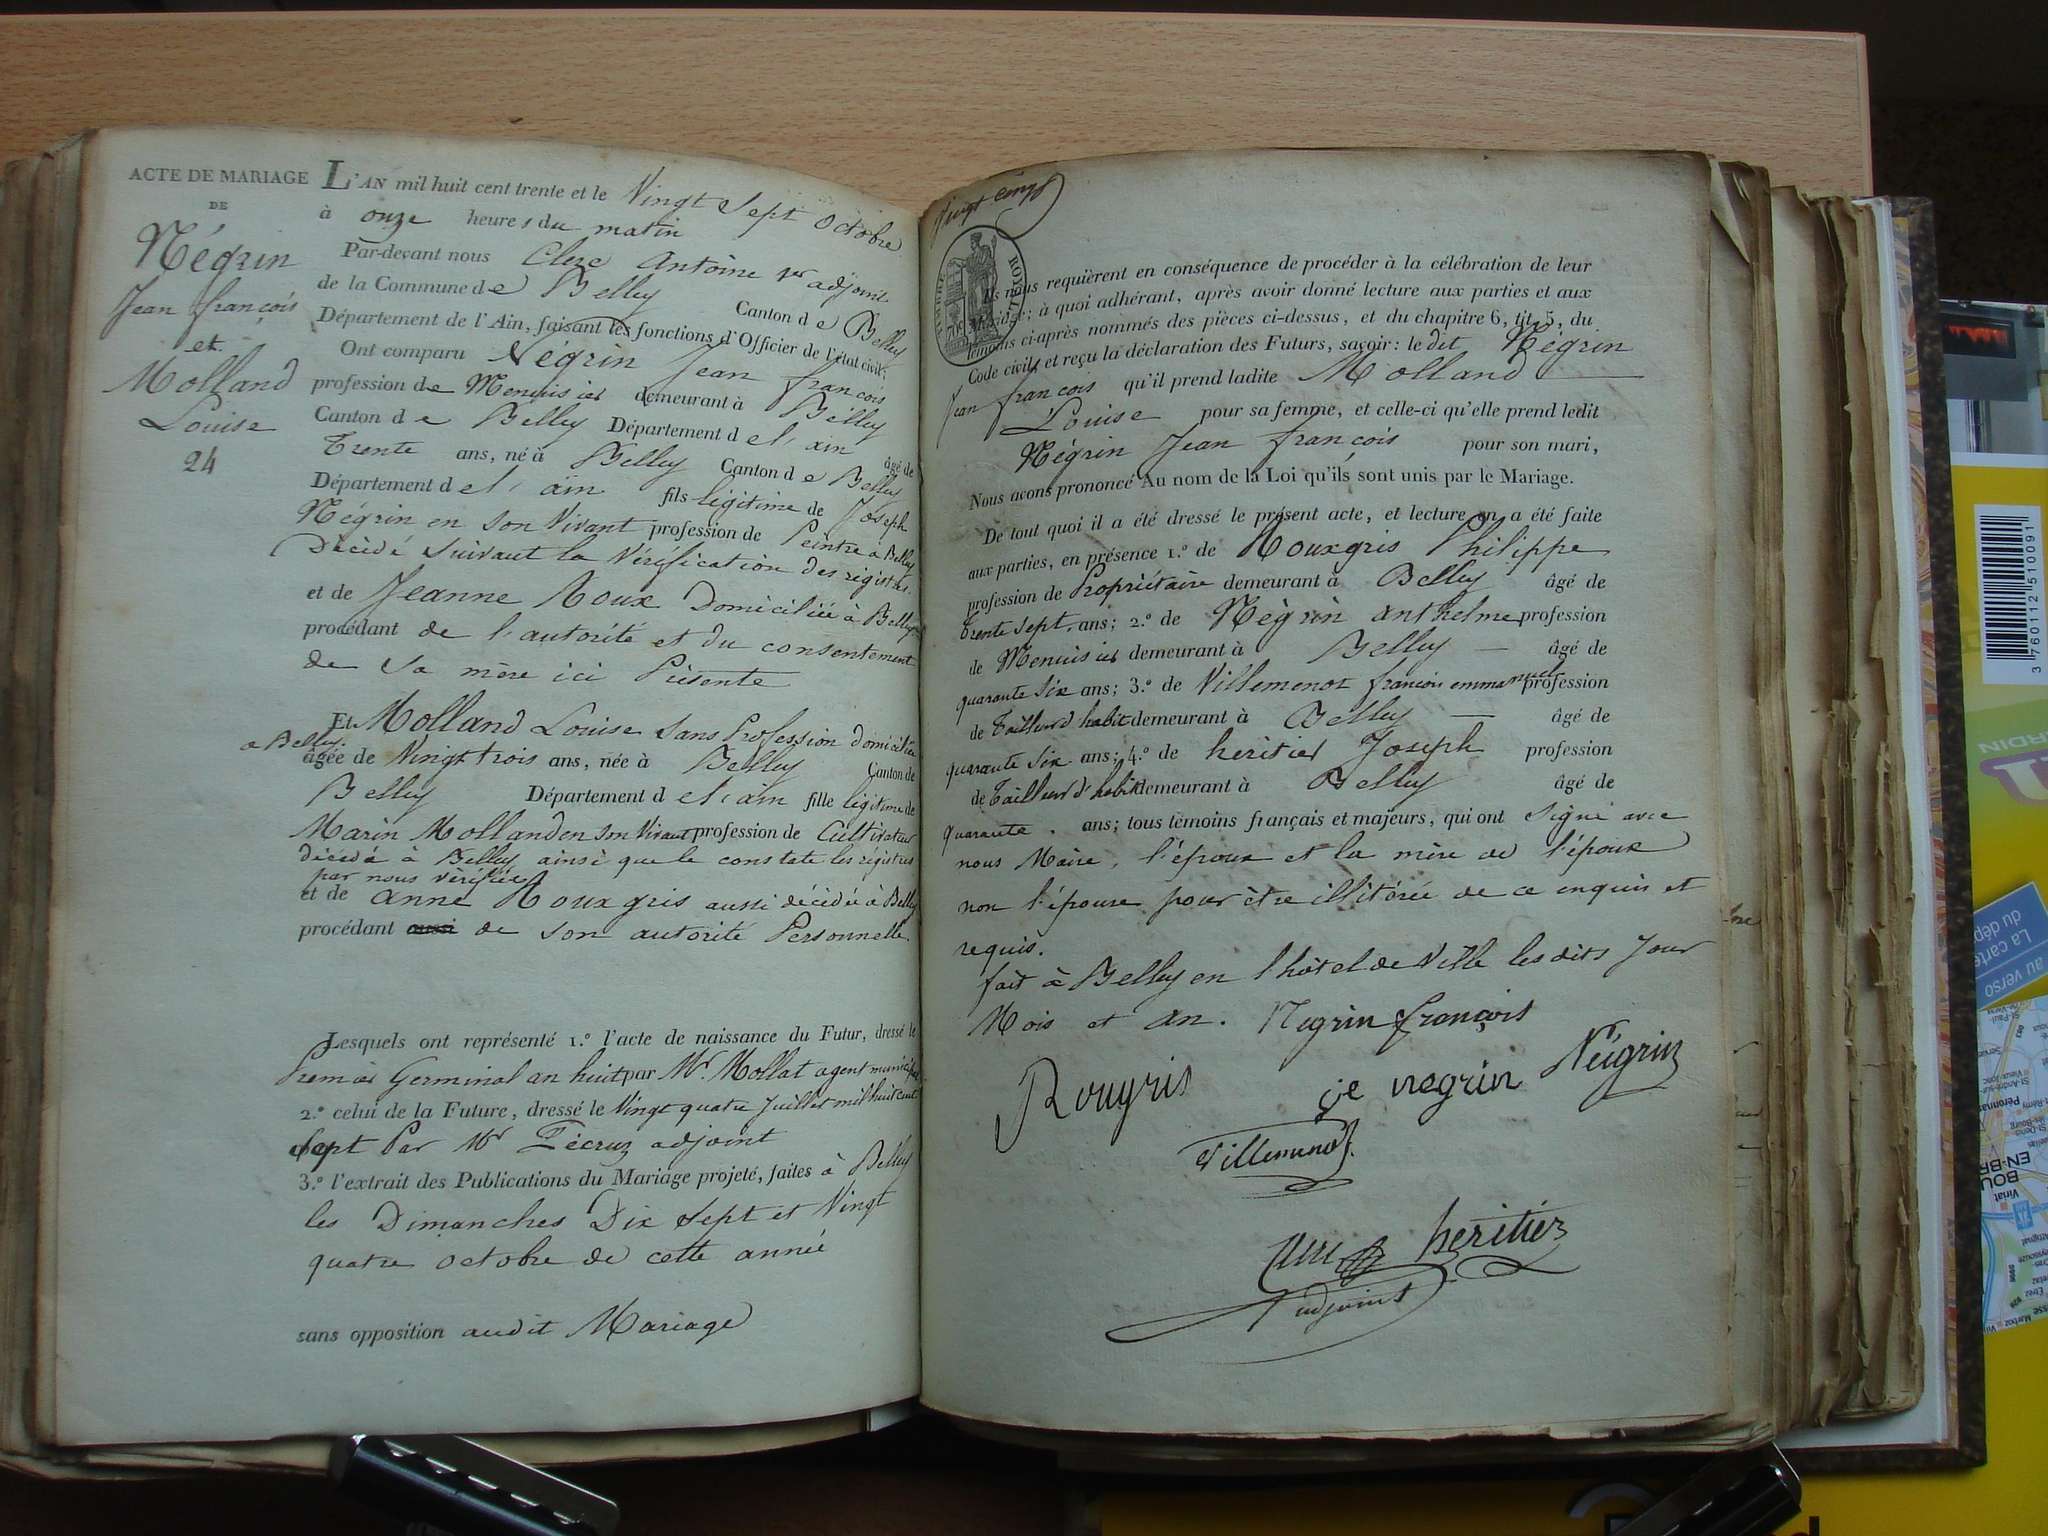 ACTE DE MARIAGE
DE
Négrin
Jean françois
et
Molland
Louise
24
L'AN mil huit cent trente et le Vingt Sept Octobre
à onze heures du matin
Par-devant nous Clerc Antoine 1er adjoint
de la Commune de Belley Canton de Belley
Département de l'Ain, faisant les fonctions d'Officier de l'état civil;
Ont comparu Négrin Jean françois
profession de Menuisier demeurant à Belley
Canton de Belley Département de l'ain âgé de
Trente ans, né à Belley Canton de Belley
Département de l'ain fils légitime de Joseph
Négrin en son Vivant profession de Peintre à Belley
Décédé suivant la Vérification des régistres.
et de Jeanne Roux Domiciliée à Belley
procédant de l'autorité et du consentement
de Sa mère ici Présente
Et Molland Louise Sans Profession domiciliée
à Belley
âgée de Vingt trois ans, née à Belley Canton de
Belley Département de l'ain fille légitime de
Marin Molland en son Vivant profession de Cultivateur
décédé à Belley ainsi que le constate les régistres
par nous vérifiés
et de anne Rouxgris aussi décédée à Belley
procédant de son autorité Personnelle.
Lesquels ont représenté 1.º l'acte de naissance du Futur, dressé le
Premier Germinal an huit par Mr. Mollat agent municipal
2.º celui de la Future, dressé le Vingt quatre Juillet mil huit cent
Sept Par Mr Técruz adjoint
3.º l'extrait des Publications du Mariage projeté, faites à Belley
les Dimanches Dix Sept et Vingt
quatre octobre de cette année
sans opposition audit Mariage
Vingt cinq
TIMBRE ROYAL
Ils nous requièrent en conséquence de procéder à la célébration de leur
Mariage; à quoi adhérant, après avoir donné lecture aux parties et aux
témoins ci-après nommés des pièces ci-dessus, et du chapitre 6, tit. 5, du
Code civil, et reçu la déclaration des Futurs, savoir: le dit Négrin
Jean françois qu'il prend ladite Molland
Louise pour sa femme, et celle-ci qu'elle prend ledit
Négrin Jean françois pour son mari,
Nous avons prononcé Au nom de la Loi qu'ils sont unis par le Mariage.
De tout quoi il a été dressé le présent acte, et lecture en a été faite
aux parties, en présence 1.º de Rouxgris Philippe
profession de Propriétaire demeurant à Belley âgé de
Trente sept ans; 2.º de Négrin anthelme profession
de Menuisier demeurant à Belley — âgé de
quarante six ans; 3.º de Villemenot françois emmanuel profession
de Tailleur d'habit demeurant à Belley — âgé de
quarante six ans; 4.º de heritier Joseph profession
de Tailleur d'habit demeurant à Belley âgé de
quarante. ans; tous témoins français et majeurs, qui ont Signé avec
nous Maire, l'époux et la mère de l'époux
non l'épouse pour être illitérée de ce enquis et
requis.
fait à Belley en l'hôtel de Ville les dits Jour
Mois et an. Negrin françois
Rougris je negrin Négrin
Villemenot
Clerc heritier
adjoint
3 760112 510091
La carte
du dép
au verso